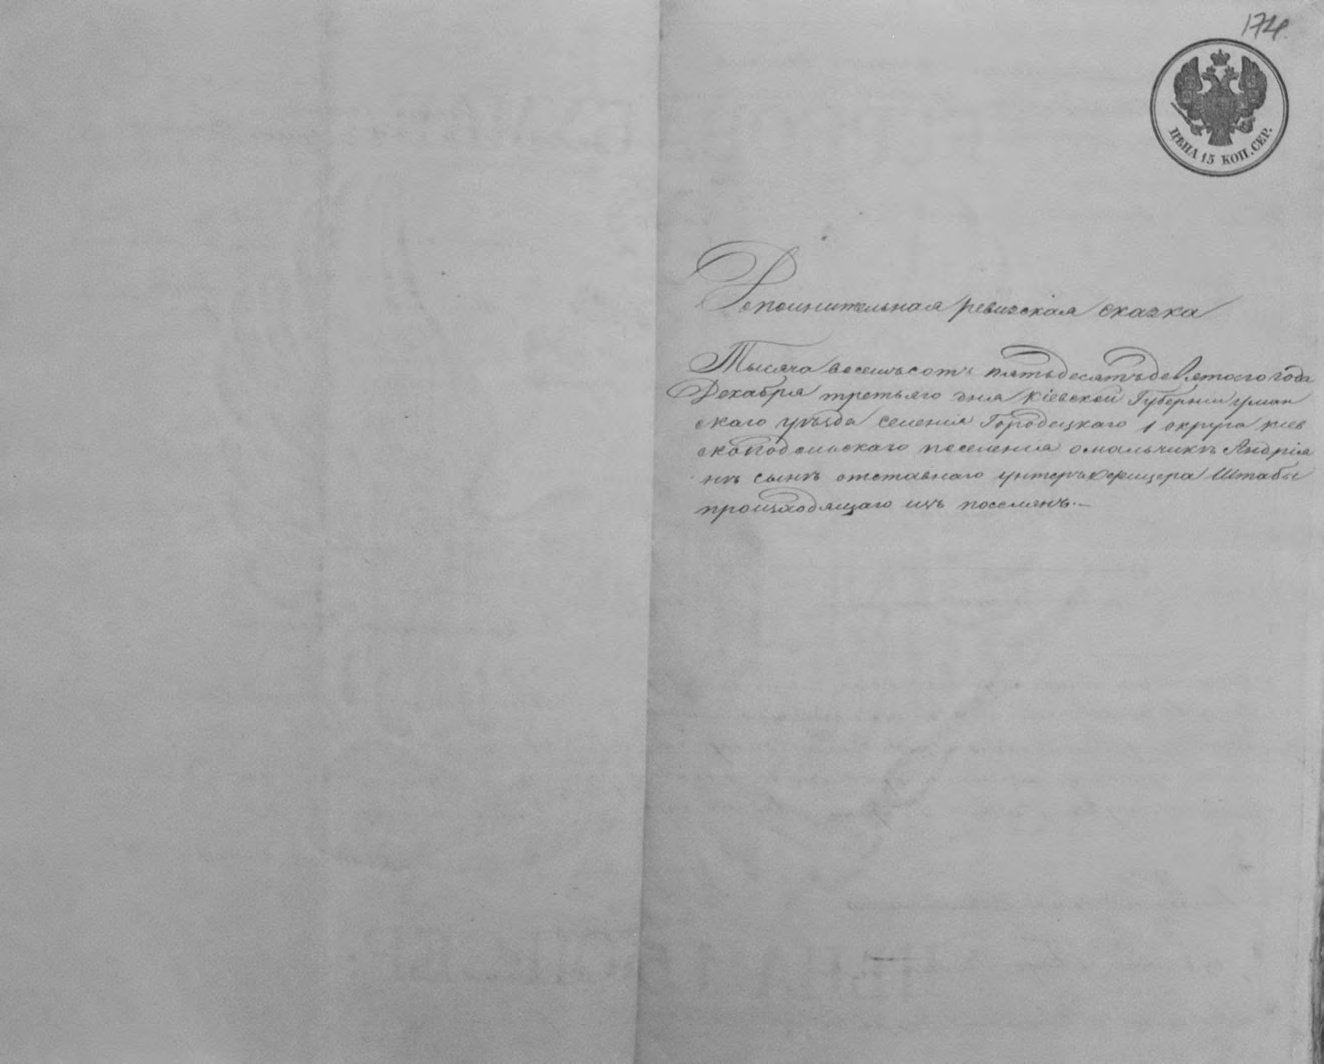 174.
ЦѢНА 15 КОП. СЕР.
Дополнительная ревизская сказка
Тысяча восемьсотъ пятьдесятъ девятого года
Декабря третьяго дня Кіевской Губерніи уман
скаго уѣзда селенія Городецкаго 1 округа кіев
скоподольскаго поселенія о мальчикѣ Андрія
нѣ сынѣ отставнаго унтеръ офицера Штабы
происходящаго изъ поселянъ.—